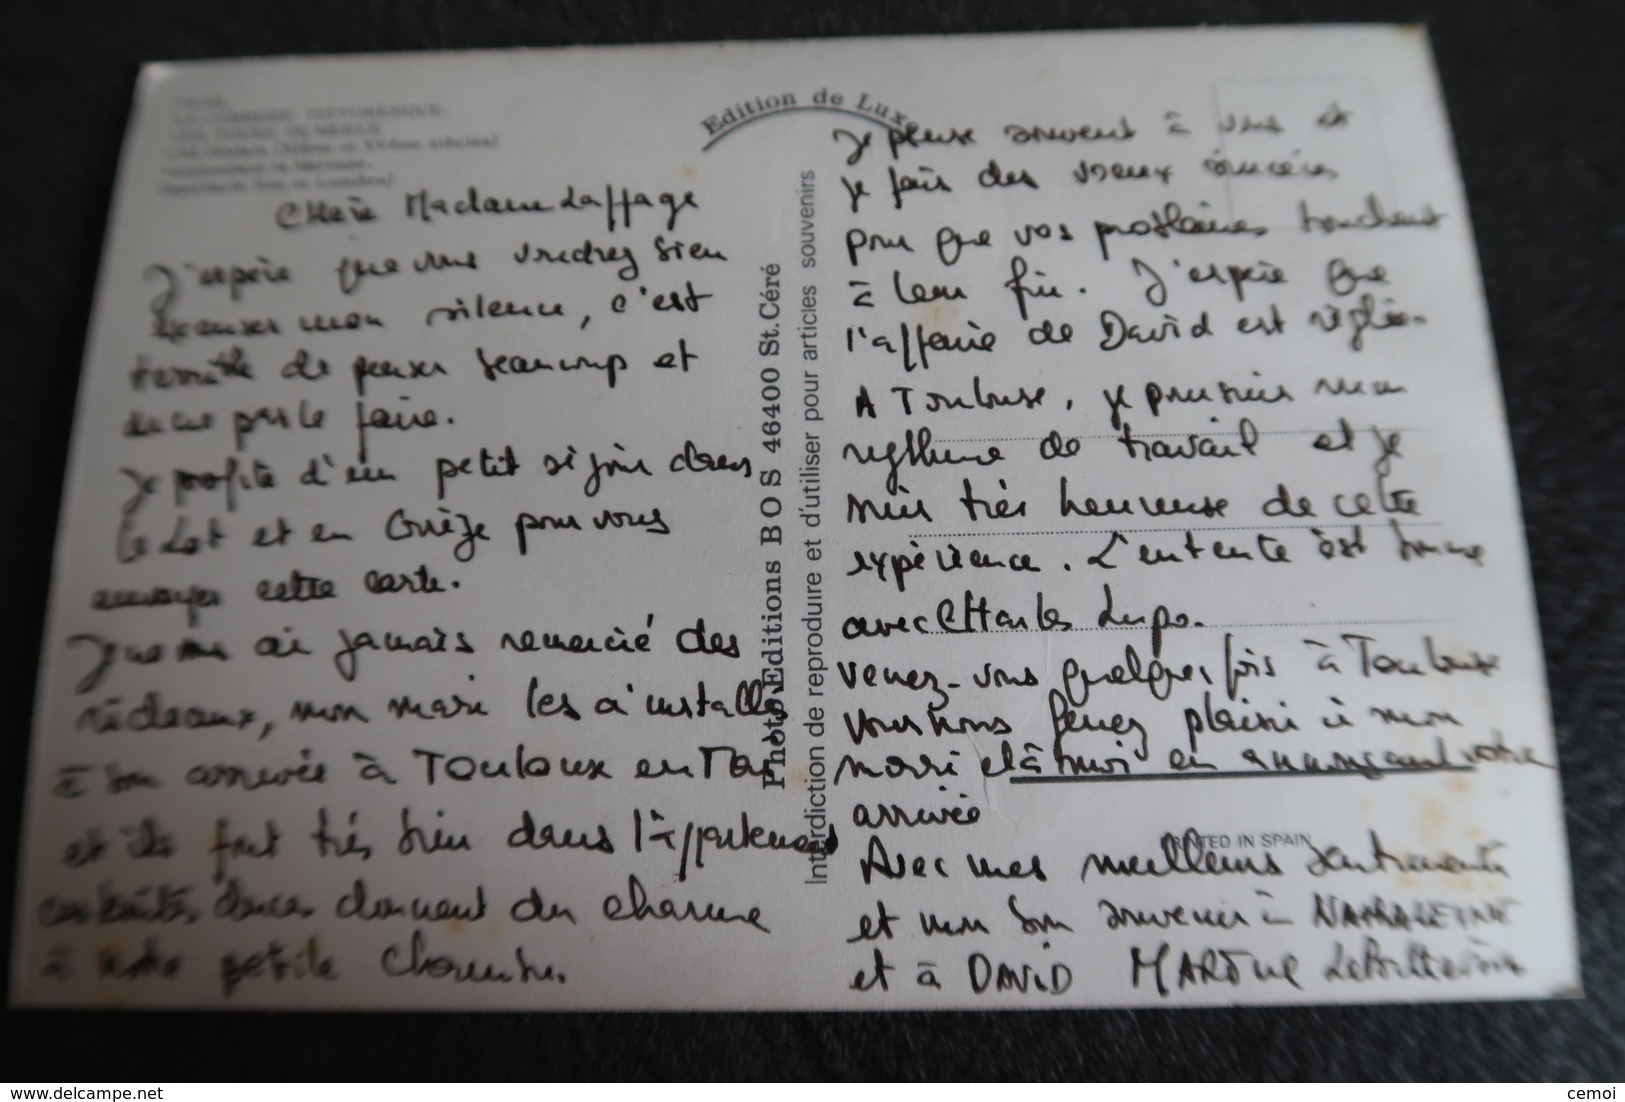 LA CORREZE PITTORESQUE.
LES TOURS DE MERLE
(Spectacle Son et Lumière)
Chère Madame Laffage
J'espère que vous voudrez bien
excuser mon silence, c'est
terrible de penser beaucoup et
de ne pas le faire.
Je profite d'un petit séjour dans
le Lot et en Corrèze pour vous
envoyer cette carte.
Je ne vous ai jamais remercié des
rideaux, mon mari les a installés
à son arrivée à Toulouse en Mai
et ils font très bien dans l'appartement
ces teintes douces donnent du charme
à notre petite chambre.
Edition de Luxe
Photo Editions BOS 46400 St.Céré
Interdiction de reproduire et d'utiliser pour articles souvenirs
Je pense souvent à vous et
je fais des voeux sincères
pour que vos problèmes touchent
à leur fin. J'espère que
l'affaire de David est réglée.
A Toulouse, je poursuis mon
rythme de travail et je
suis très heureuse de cette
expérience. L'entente est bonne
avec Charles Lupo.
Venez-vous quelques fois à Toulouse
vous nous ferez plaisir à mon
mari et à moi en annonçant votre
arrivée
PRINTED IN SPAIN
Avec mes meilleurs sentiments
et mon bon souvenir à
et à DAVID MARTINE
cemoi